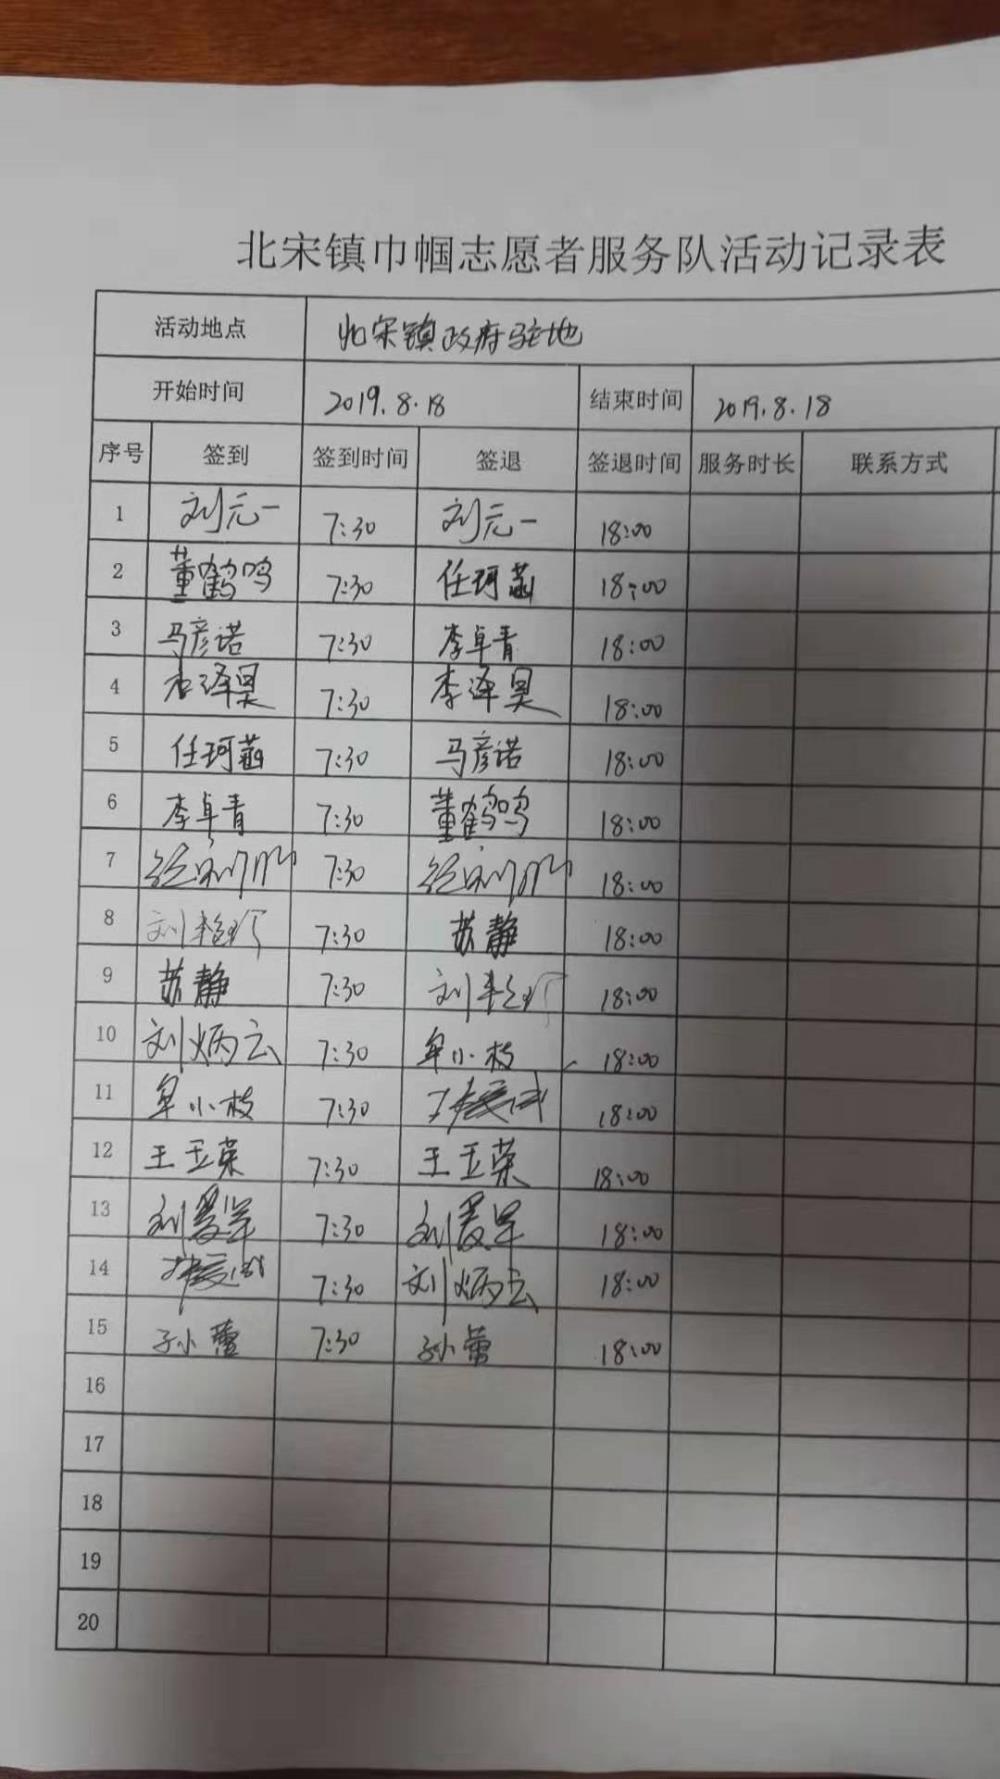 北宋镇巾帼志愿者服务队活动记录表
活动地点 北宋镇政府驻地
开始时间 2019.8.18 结束时间 2019.8.18
序号 签到 签到时间 签退 签退时间 服务时长 联系方式
1 刘元一 7:30 刘元一 18:00
2 董鹤鸣 7:30 任珂菡 18:00
3 马彦诺 7:30 李卓青 18:00
4 李泽昊 7:30 李泽昊 18:00
5 任珂菡 7:30 马彦诺 18:00
6 李卓青 7:30 董鹤鸣 18:00
7 7:30 18:00
8 刘艳 7:30 苏静 18:00
9 苏静 7:30 刘艳 18:00
10 刘炳云 7:30 牟小枝 18:00
11 牟小枝 7:30 18:00
12 王玉荣 7:30 王玉荣 18:00
13 刘爱军 7:30 刘爱军 18:00
14 7:30 刘炳云 18:00
15 孙小蕾 7:30 孙小蕾 18:00
16
17
18
19
20